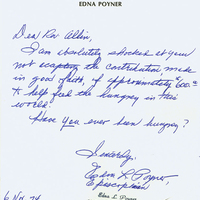 EDNA POYNER
Dear Rev. Allin,
I am absolutely shocked at your
not accepting the contribution, made
in good faith, of approximately $600.00
to help feed the hungry in this
world.
Have you ever been hungry?
Sincerely,
Edna L. Poyner,
Episcopalian
Edna L. Poyner
6 Nov. 74